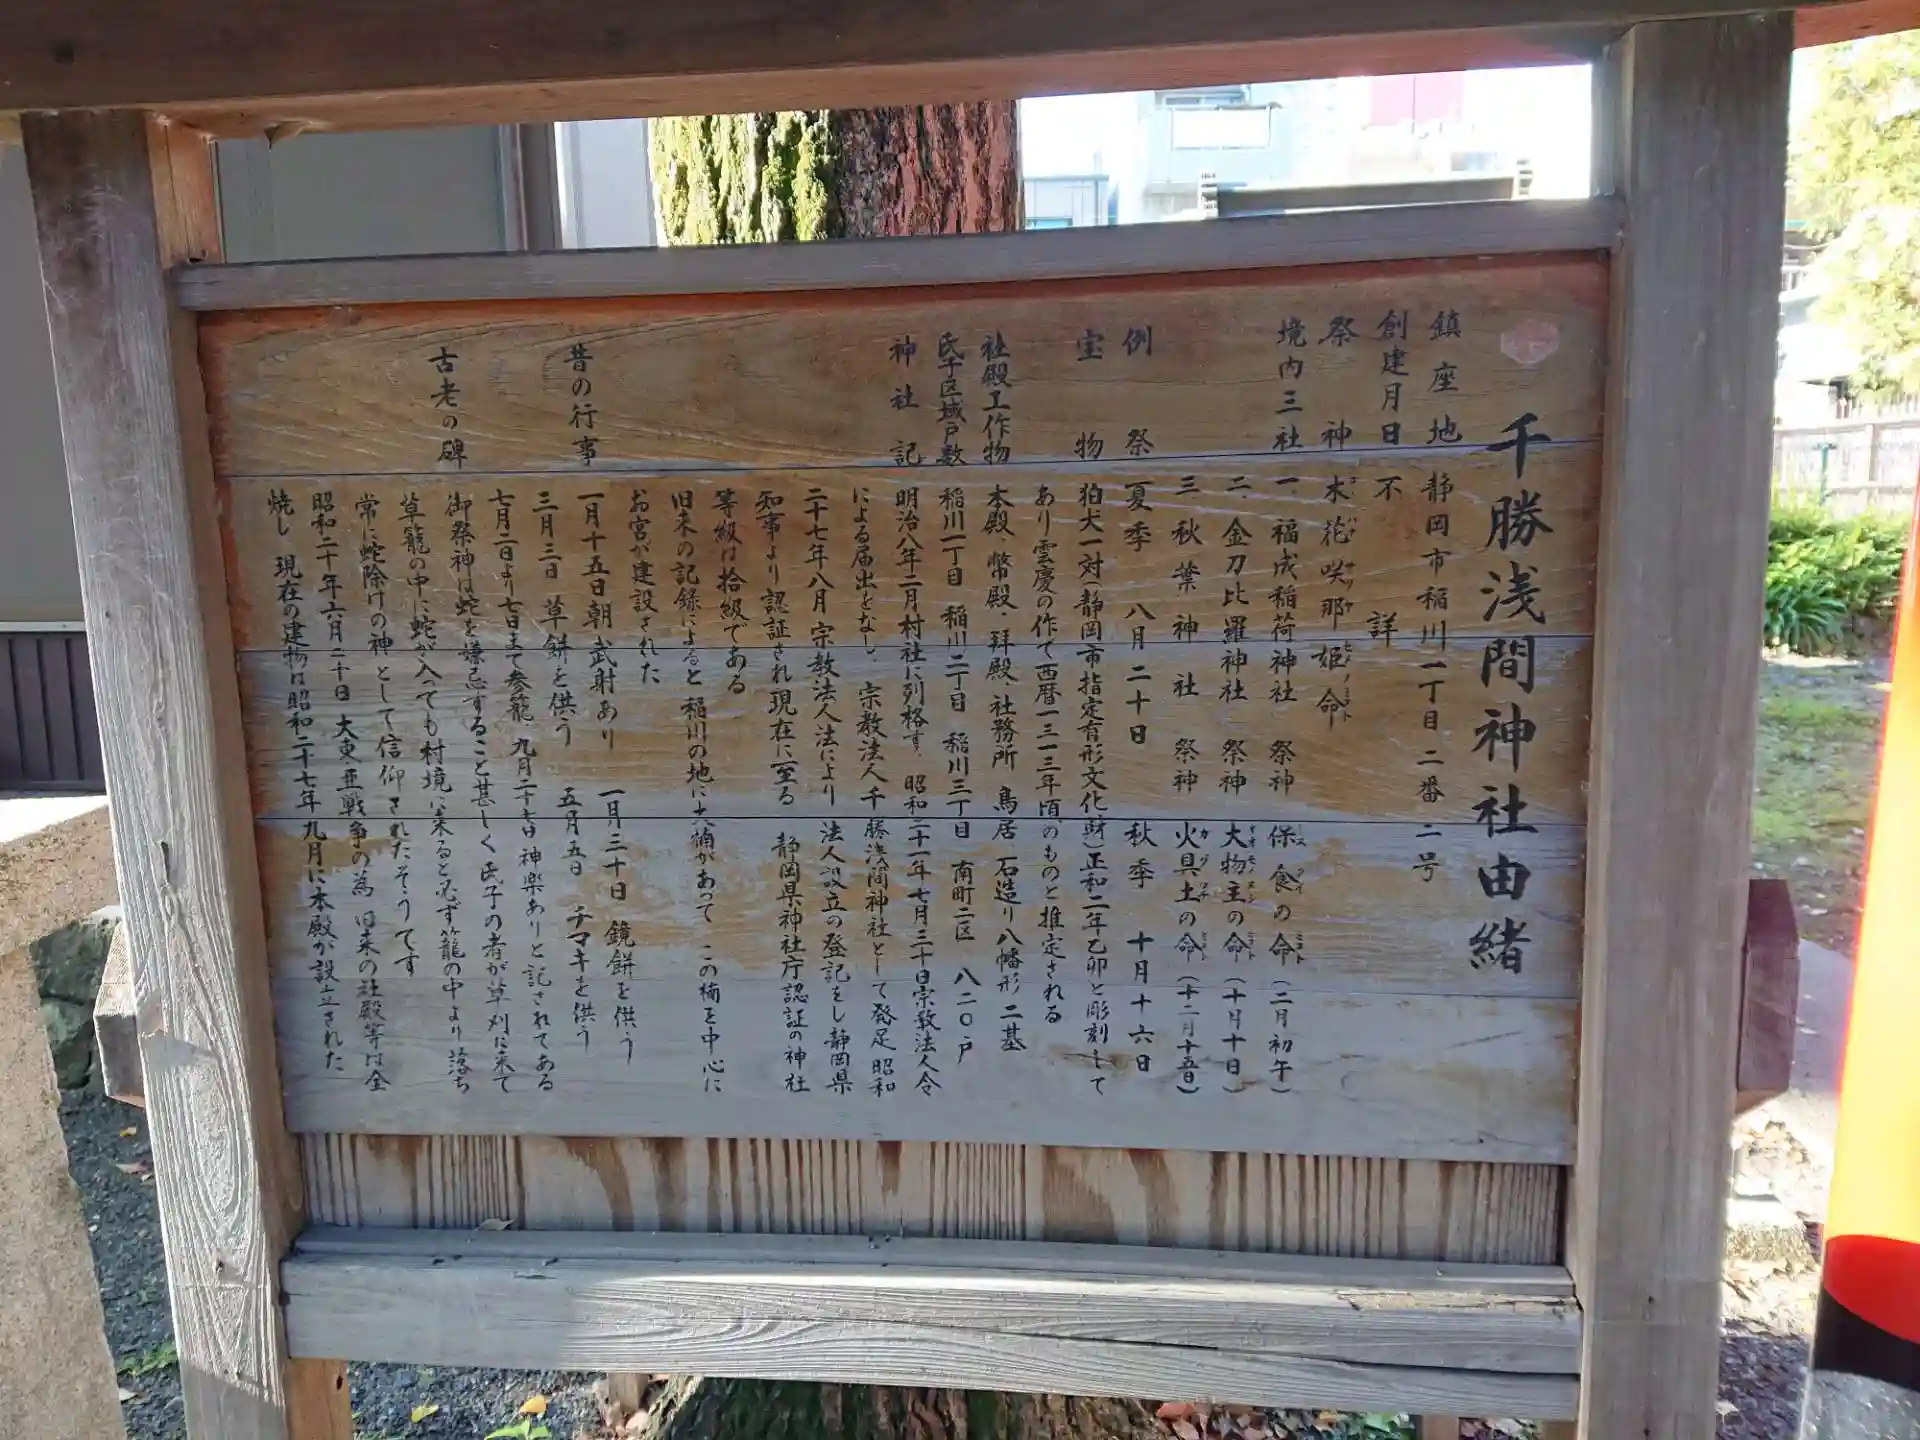 千勝浅間神社由緒
鎮座地 静岡市稲川一丁目二番二号
創建月日 不詳
祭神 木花咲那姫命
境内三社 一、福成稲荷神社 祭神 保食の命(二月初午)
二、金刀比羅神社 祭神 大物主の命(十月十日)
三、秋葉神社 祭神 火具土の命(十二月十五日)
例祭 夏季 八月二十日 秋季 十月十六日
宝物 狛犬一対(静岡市指定有形文化財)正和二年乙卯と彫刻して
あり雲慶の作で西暦一三一三年頃のものと推定される
社殿工作物 本殿、幣殿・拝殿 社務所 鳥居 石造り八幡形 二基
氏子区域戸数 稲川一丁目 稲川二丁目 稲川三丁目 南町二区 八二〇戸
神社記 明治八年二月村社に列格す、昭和二十一年七月三十日宗教法人令
による届出をなし、宗教法人千勝浅間神社として発足 昭和
二十七年八月宗教法人法により 法人設立の登記をし静岡県
知事より認証され現在に至る 静岡県神社庁認証の神社
等級は拾級である
旧来の記録によると稲川の地に大楠があって この楠を中心に
お宮が建設された
昔の行事 一月十五日朝 武射あり 一月三十日 鏡餅を供う
三月三日 草餅を供う 五月五日 チマキを供う
七月二日より七日まで参籠 九月二十七日神楽ありと記されてある
御祭神は蛇を嫌忌すること甚しく氏子の者が草刈に来て
古老の碑 草籠の中に蛇が入っても村境に来ると必ず籠の中より落ち
常に蛇除けの神として信仰されたそうです
昭和二十年六月二十日 大東亜戦争の為 旧来の社殿等は全
焼し 現在の建物は昭和二十七年九月に本殿が設立された